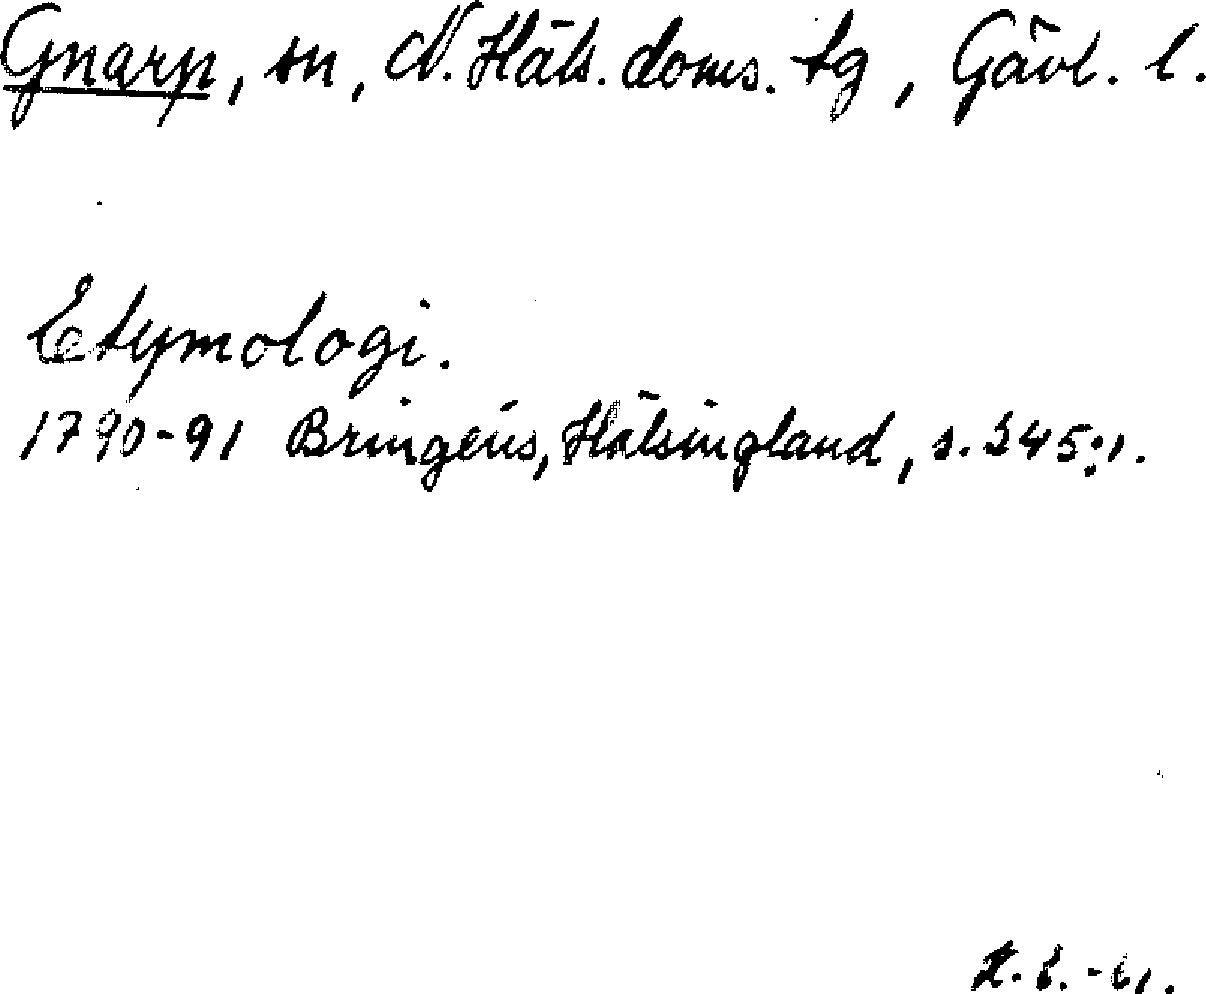 Gnarp, sn, N. Häls. doms. tg, Gävl. l.
Etymologi.
1790-91 Bringéus, Hälsingland, s. 345:1.